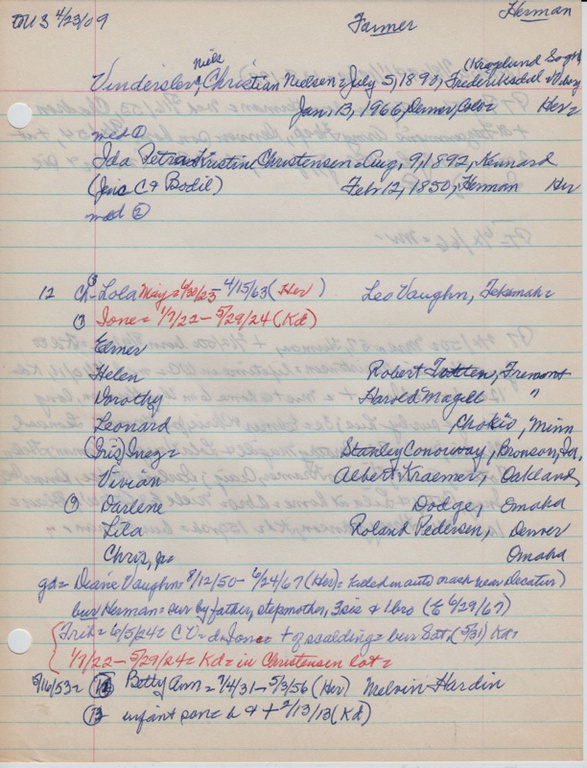 4/23/09 Farmer Herman
Niels (Kragelund Sogn
Vinderslev, Christian Nielsen = July 5, 1890, Frederiksdal = Viborg
Jan, 13, 1966, Denver, Colo = Her =
med ①
Ida Petra Kristine Christensen = Aug, 9, 1892, Kennard
(Jens C & Bodil) Feb 12, 1850, Herman Her
med ②
12 Ch = Lola May = 4/30/23 - 4/15/63 (Her) Leo Vaughn, Tekamah =
① Ione = 1/7/22 - 5/29/24 (Kd)
Elmer
Helen Robert Totten, Fremont
Dorothy Harold Magill "
Leonard Chokio, Minn
(Chris) Inez = Stanley Conoway, Bronson, Ia,
Vivian Albert Kraemer, Oakland,
Darlene Dodge, Omaha
Lila Roland Pedersen, Denver
Chris, Jr Omaha
gd = Diane Vaughn = 8/12/50 - 6/24/67 (Her) = killed in auto crash near Decatur)
bur Herman = sur by father, stepmother, 3 sis & 1 bro (E 6/29/67)
Trib = 6/5/24 = C V = d Ione = + of scalding = bur Sat, (5/31) Kd =
1/7/22 - 5/29/24 = Kd = in Christensen lot =
5/16/53 = Betty Ann = 7/4/31 - 5/3/56 (Her) Melvin Hardin
⑬ infant son = b & + 2/13/13 (Kd)